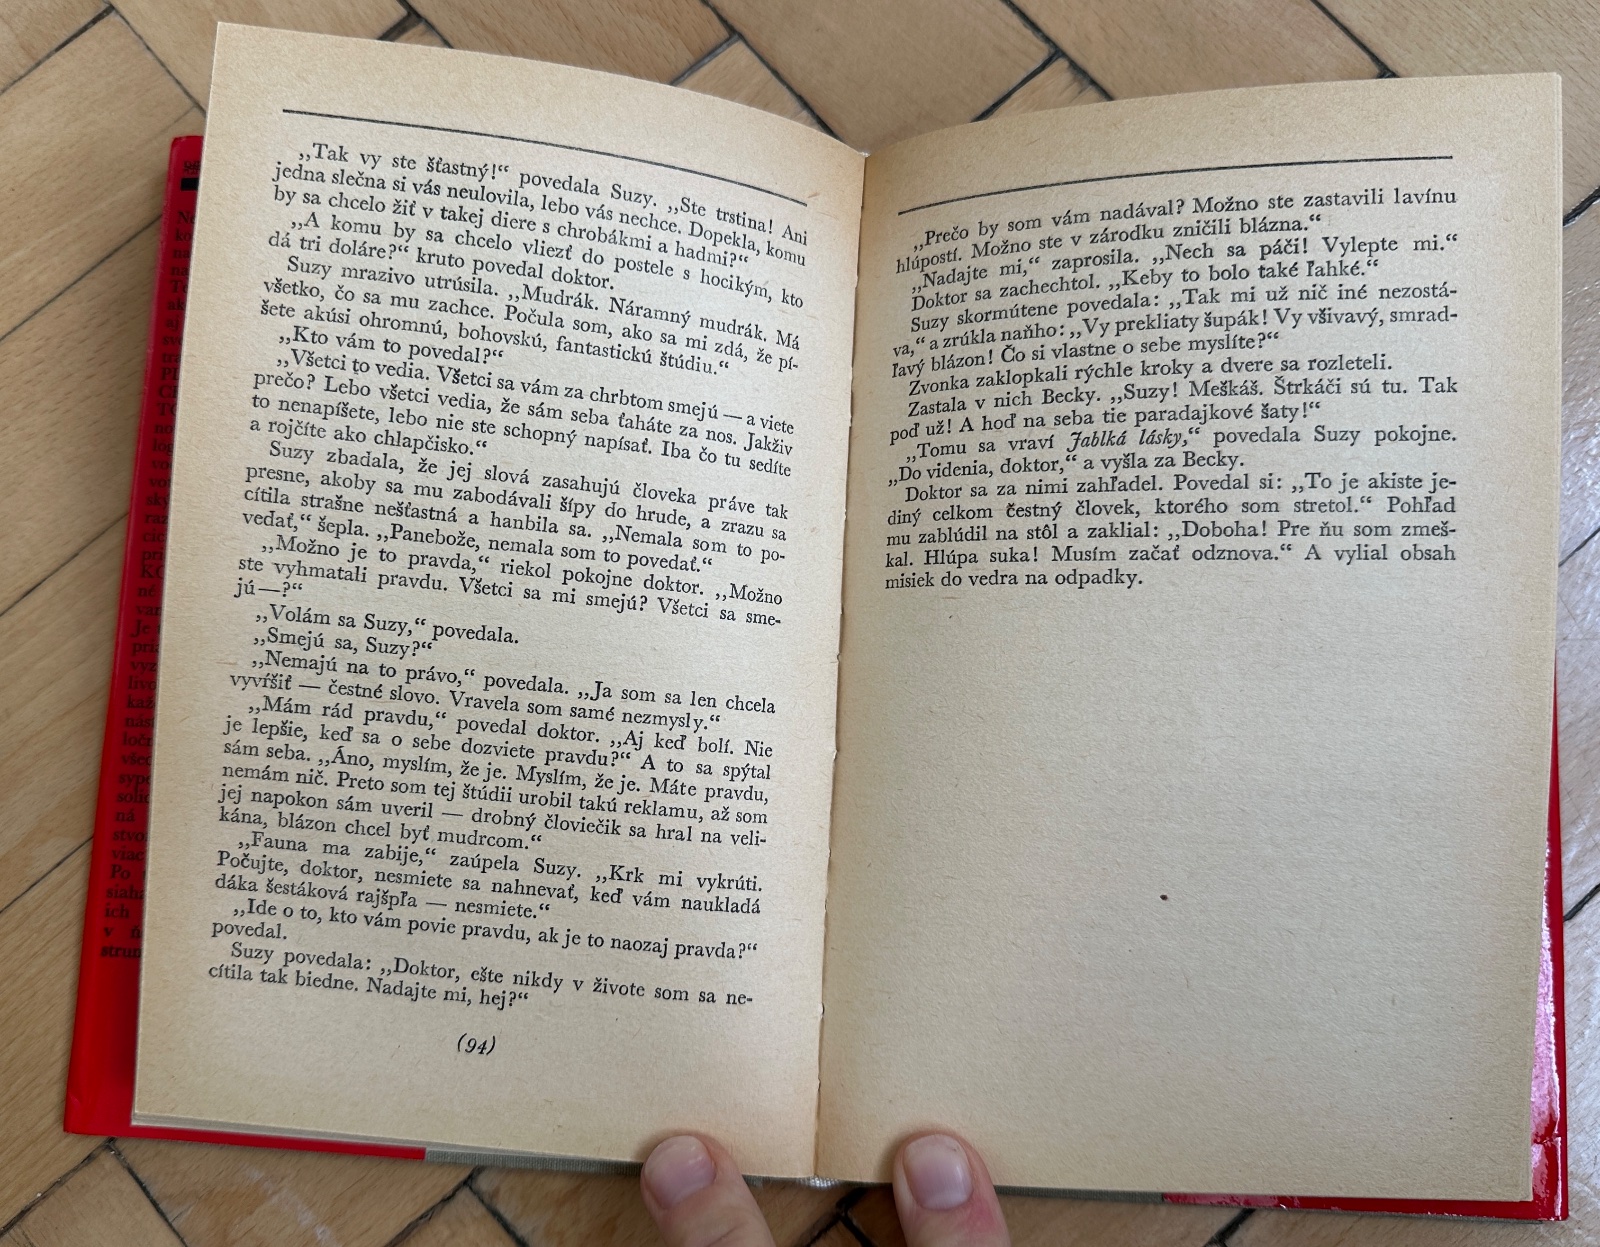 „Tak vy ste šťastný!“ povedala Suzy. „Ste trstina! Ani
jedna slečna si vás neulovila, lebo vás nechce. Dopekla, komu
by sa chcelo žiť v takej diere s chrobákmi a hadmi?“
„A komu by sa chcelo vliezť do postele s hocikým, kto
dá tri doláre?“ kruto povedal doktor.
Suzy mrazivo utrúsila. „Mudrák. Náramný mudrák. Má
všetko, čo sa mu zachce. Počula som, ako sa mi zdá, že pí-
šete akúsi ohromnú, bohovskú, fantastickú štúdiu.“
„Kto vám to povedal?“
„Všetci to vedia. Všetci sa vám za chrbtom smejú — a viete
prečo? Lebo všetci vedia, že sám seba ťaháte za nos. Jakživ
to nenapíšete, lebo nie ste schopný napísať. Iba čo tu sedíte
a rojčíte ako chlapčisko.“
Suzy zbadala, že jej slová zasahujú človeka práve tak
presne, akoby sa mu zabodávali šípy do hrude, a zrazu sa
cítila strašne nešťastná a hanbila sa. „Nemala som to po-
vedať,“ šepla. „Panebože, nemala som to povedať.“
„Možno je to pravda,“ riekol pokojne doktor. „Možno
ste vyhmatali pravdu. Všetci sa mi smejú? Všetci sa sme-
jú—?“
„Volám sa Suzy,“ povedala.
„Smejú sa, Suzy?“
„Nemajú na to právo,“ povedala. „Ja som sa len chcela
vyvŕšiť — čestné slovo. Vravela som samé nezmysly.“
„Mám rád pravdu,“ povedal doktor. „Aj keď bolí. Nie
je lepšie, keď sa o sebe dozviete pravdu?“ A to sa spýtal
sám seba. „Áno, myslím, že je. Myslím, že je. Máte pravdu,
nemám nič. Preto som tej štúdii urobil takú reklamu, až som
jej napokon sám uveril — drobný človiečik sa hral na veli-
kána, blázon chcel byť mudrcom.“
„Fauna ma zabije,“ zaúpela Suzy. „Krk mi vykrúti.
Počujte, doktor, nesmiete sa nahnevať, keď vám naukladá
dáka šestáková rajšpľa — nesmiete.“
„Ide o to, kto vám povie pravdu, ak je to naozaj pravda?“
povedal.
Suzy povedala: „Doktor, ešte nikdy v živote som sa ne-
cítila tak biedne. Nadajte mi, hej?“
(94)
„Prečo by som vám nadával? Možno ste zastavili lavínu
hlúpostí. Možno ste v zárodku zničili blázna.“
„Nadajte mi,“ zaprosila. „Nech sa páči! Vylepte mi.“
Doktor sa zachechtol. „Keby to bolo také ľahké.“
Suzy skormútene povedala: „Tak mi už nič iné nezostá-
va,“ a zrúkla naňho: „Vy prekliaty šupák! Vy všivavý, smrad-
ľavý blázon! Čo si vlastne o sebe myslíte?“
Zvonka zaklopkali rýchle kroky a dvere sa rozleteli.
Zastala v nich Becky. „Suzy! Meškáš. Štrkáči sú tu. Tak
poď už! A hoď na seba tie paradajkové šaty!“
„Tomu sa vraví Jablká lásky,“ povedala Suzy pokojne.
„Do videnia, doktor,“ a vyšla za Becky.
Doktor sa za nimi zahľadel. Povedal si: „To je akiste je-
diný celkom čestný človek, ktorého som stretol.“ Pohľad
mu zablúdil na stôl a zaklial: „Doboha! Pre ňu som zmeš-
kal. Hlúpa suka! Musím začať odznova.“ A vylial obsah
misiek do vedra na odpadky.